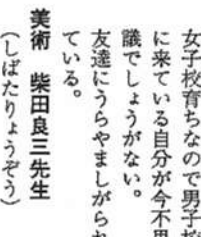 女子校育ちなので男子校
に来ている自分が今不思
議でしょうがない。
友達にうらやましがられ
ている。
美術　柴田良三先生
（しばたりょうぞう）